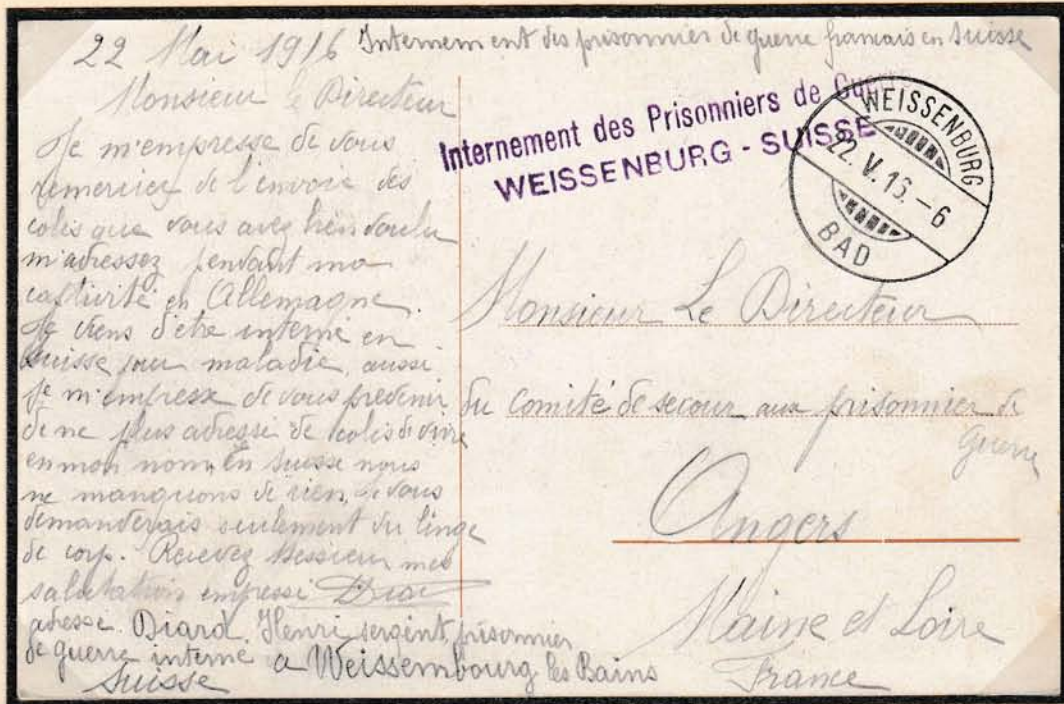 22 Mai 1916 Internement des prisonnier de guerre francais en Suisse
Monsieur le Directeur
Je m'empresse de vous
remercier de l'envoie des
colis que vous avez bien voulu
m'adressez pendant ma
castivité en Allemagne.
Je viens d'etre interné en
Suisse pour maladie, aussi
je m'empresse de vous prevenir
de ne plus adresse de colis de vivre
en mon nom, en Suisse nous
ne manquons de rien, je vous
demanderais seulement du linge
de corp. Recevez Messieur mes
salutation empressé Diard
adresse. Diard. Henri sergent prisonnier
de guerre interné a Weissembourg les Bains
Suisse
Internement des Prisonniers de Guerre
WEISSENBURG - SUISSE
WEISSENBURG
22. V. 16. - 6
BAD
Monsieur Le Directeur
du comité de secour aux prisonnier de
Guerre
Angers
Maine et Loire
France